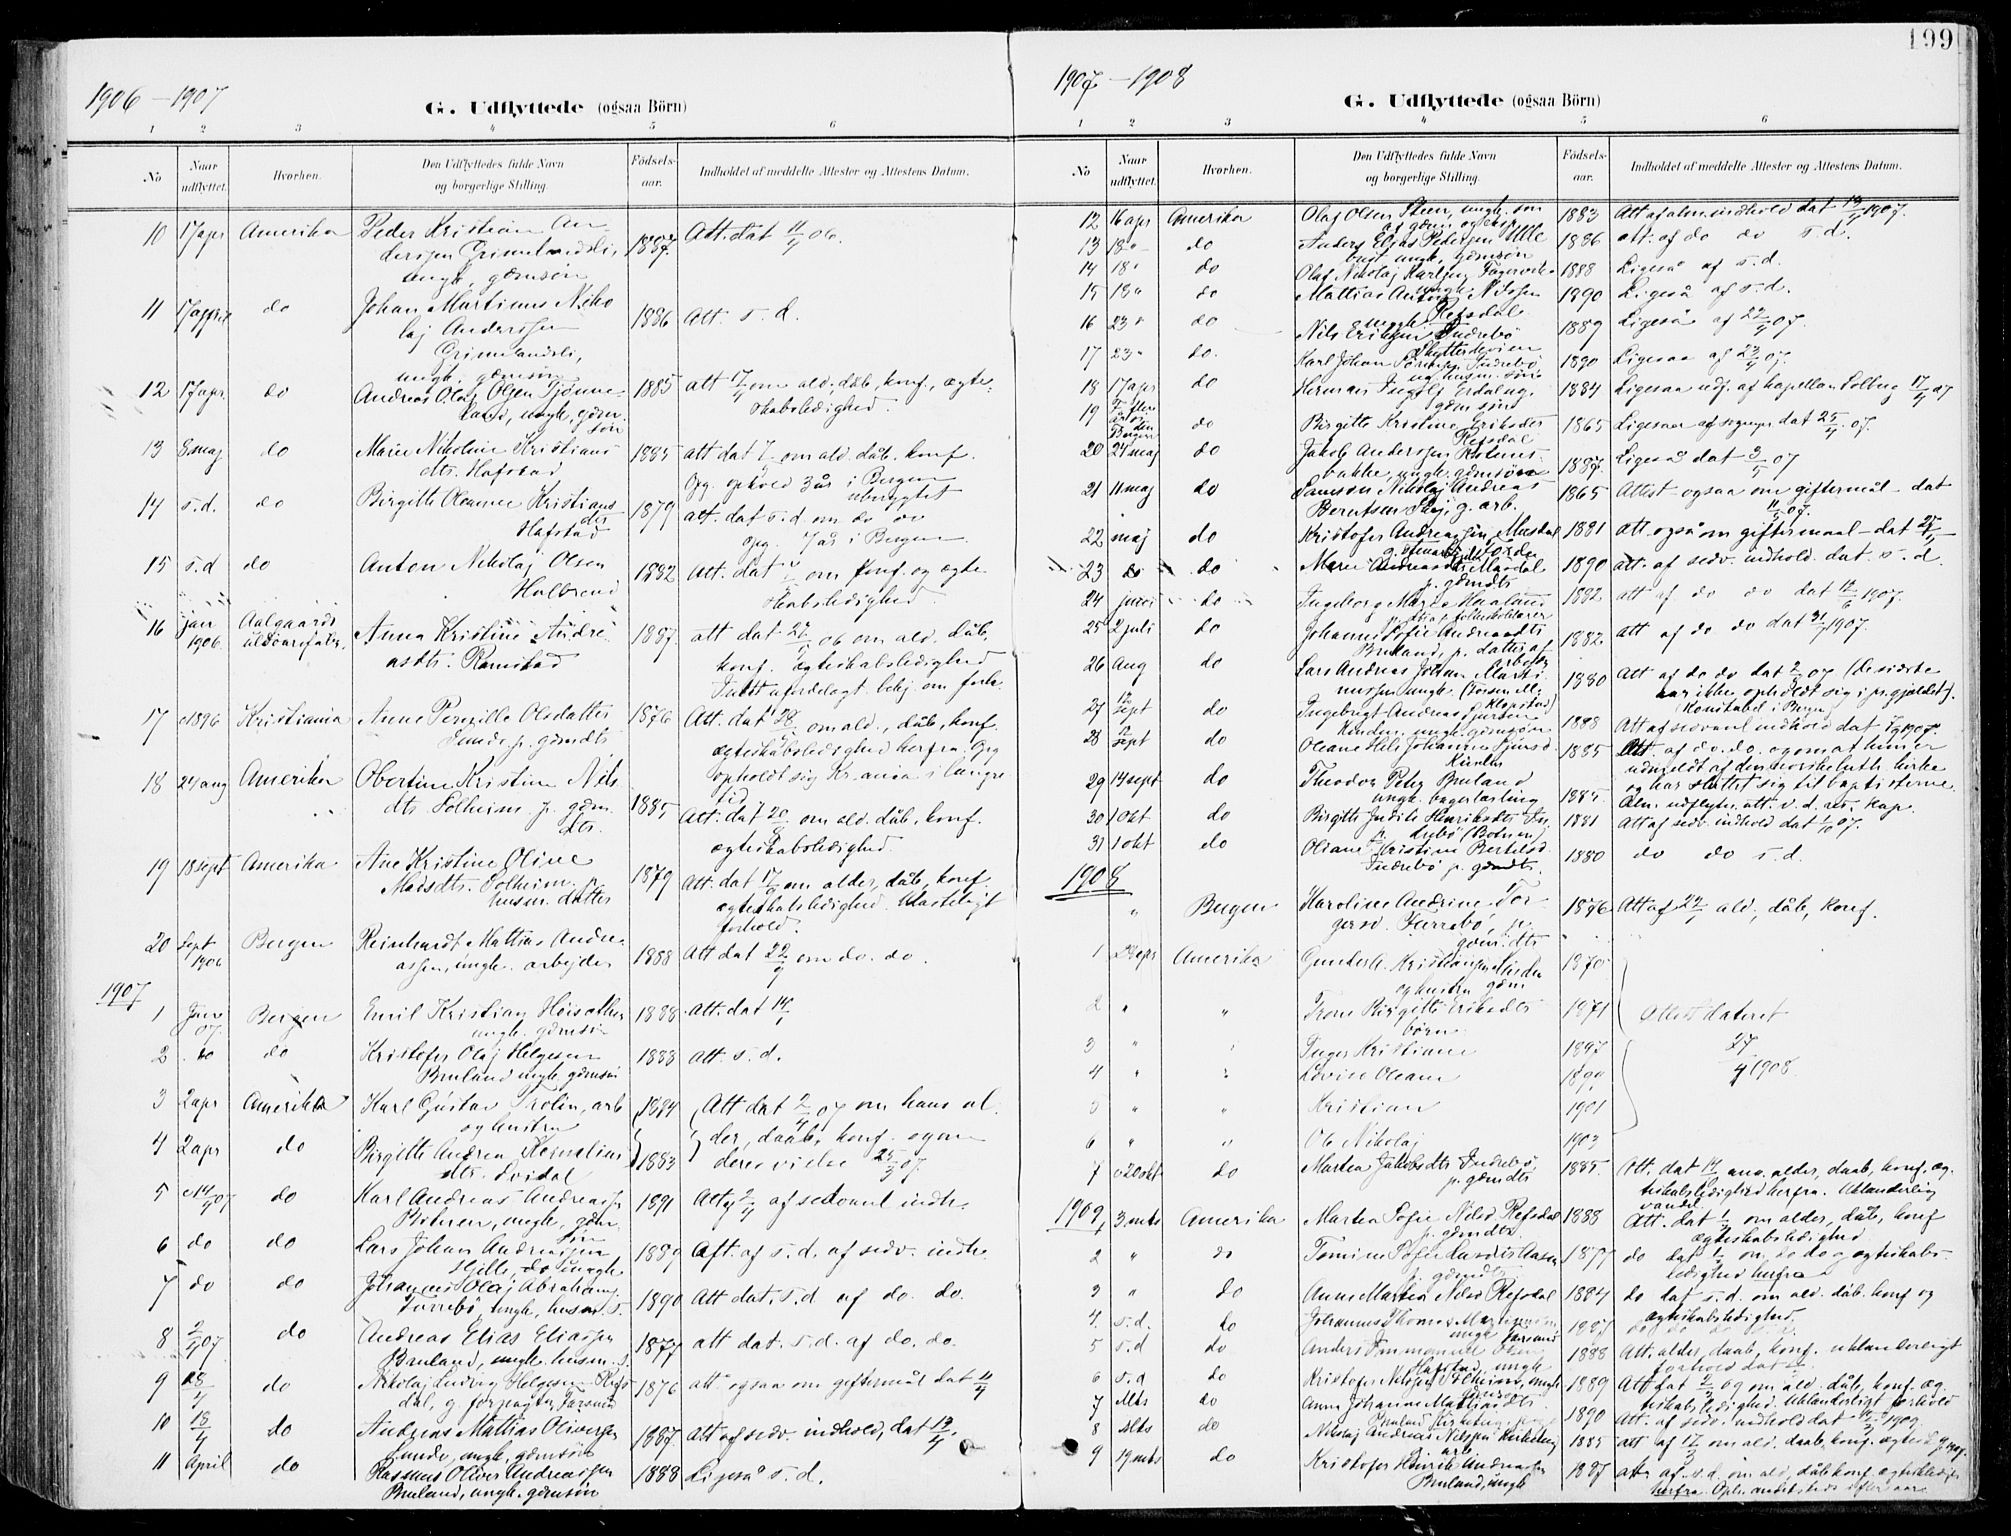 199
1906 – 1907
G. Udflyttede (ogsaa Börn)
1 2 3 4 5 6
No
Naar udflyttet.
Hvorhen.
Den Udflyttedes fulde Navn og borgerlige Stilling.
Fødsels-aar.
Indholdet af meddelte Attester og Attestens Datum.
10 17 apr Amerika Peder Kristian An- 1887. Att. dat 11/4 06.
dersen Grimelandsli,
ungk, gdmsön
11 17 april do Johan Martinus Niko 1886 Att. s. d.
laj Anderssen
Grimelandsli,
ungk. gdmsön
12 17 apr. do Andreas Olaf Olsen Tjönne- 1885 att 17/4 om ald., dåb, konf., ægte-
land, ungk, gdm- skabsledighed.
sön
13 8 maj do Marie Nikoline Kristians 1885 att dat 7/5 om ald. dåb. konf.
dtr. Hafstad Opg. ophold 3 år i Bergen
14 s. d. do Birgitte Oleanne Kristians 1879 att. dat s. d om do do
dtr
Hafstad Opg. 7 år i Bergen
15 s. d do Anton Nikolaj Olsen 1882 Att. dat om konf. og ægte-
Halbrend skabsledighed.
16 jan 1906 Aalgaards uldvarefabr. Anna Kristine Andre- 1887. att dat 06 om ald, dåb,
asdtr. Ramstad konf. ægteskabsledighed
17 1896 Kristiania Anne Pernille Olsdatter 1876 Att. dat 28 om ald., dåb, konf.
p. gdmdtr ægteskabsledighed herfra. Opg
opholdt sig Kr.ania i længre
tid
18 24 aug Amerika Obertine Kristine Nils 1885 Att. dat 20/8 om ald. dåb, konf.
dtr. Solheim p. gdm. ægteskabsledighed
dtr.
19 18 sept Amerika Ane Kristine Oline 1879 Att. dat 17/9 om alder, dåb, konf
Madsdtr. Solheim p. ægteskabsledighed. Ulasteligt
husm. datter forhold.
20 Sept 1906 Bergen Reinhardt Mattias Andre- 1888 Att dat 22/9 om do. do.
assen, ungk. arbejder
1907
1 Jan 07. Bergen Emil Kristian Höisæther 1888 Att. dat 14/1
ungk. gdmsön
2 do do Kristofer Olaj Helgesen 1883 Att. s. d.
Bruland ungk gdmsön
3 2 apr Amerika Karl Gustav Trolin, arb 1884 Att dat 2/4 07 om hans al-
og hustru der, daab, konf. og om
4 2 apr do Birgitte Andrea Kornelius 1883 deres vielse 25/3 07.
dtr. Svidal
5 14/4 07 do Karl Andreas Andreassen 1891 Att af sedvanl indh.
ungk, gdm
sön
6 do do Lars Johan Andreassen 1889 Att. af s. d. af sedv. indh.
Hjelle, do ungk
7 do do Johannes Olaj Abrahams. 1890 Att dat. s. d af do. do.
Farrebö, ungk, husm. s.
8 2/4 07 do Andreas Elias Eliassen 1877 att dat. s. d. af do. do.
Bruland, ungk. husm. s.
9 18/4 do Nikolaj Ludvig Helgesen Refs 1876 att. ogsaa om giftermål dat 11/4
dal, g. forpagter, Farsund
10 18/4 do Andreas Mathias Oliversen 1887. att af sedv. indhold, dat 17/4.
Lunde, ungk. gdmsön
11 April do Rasmus Oliver Andreassen 1888 Ligeså s. d.
Bruland, ungk. gdmsön
1907 – 1908
G. Udflyttede (ogsaa Börn)
1 2 3 4 5 6
No
Naar udflyttet.
Hvorhen.
Den Udflyttedes fulde Navn og borgerlige Stilling.
Fødsels-aar.
Indholdet af meddelte Attester og Attestens Datum.
12 16 apr Amerika Olaf Olsen Steen, ungk. sön 1883 Att af alm. indhold dat 13/4 1907.
13 18 do Anders Elias Pedersen Ulle 1886 att. af do do s. d.
ungk, gdmsön
14 18 do Olaf Nikolaj Karlsen Fagervik 1888 Ligeså af s. d.
15 18 do Mattias Anton Nilssen 1890 Ligeså af s. d.
ungk. Refsdal
16 23 do Nils Eriksen Indrebö 1889 Ligeså af 22/4 07.
17 23 do. Karl Johan Indrebö 1890 Ligesaa af 23/4 07.
18 17 apr do Herman Ingolf Erdal ug. 1884 Ligesaa udf. af kapellan Solberg 17/4 07
gdm sön
19 Bergen do Birgitte Kristine Eriksdtr 1865 Ligesaa af sognepr dat 25/4 07.
Refsdal
20 24 maj do Jakob Anderssen 1887. Ligeså dat 3/5 07
bakke ungk. gdmsön
21 11 maj do Samson Nikolaj Andreas 1865 Attest ogsaa om giftermål dat
Berntsen g. arb. 11/5 07.
22 maj do Kristofer Andreassen Mardal 1881 att også om giftermaal dat 27/5
23 do do Marie Andreasdtr Mardal 1890 att. af sedv. indhold dat. s. d.
p. gdmdtr
24 juni do Ingeborg Marie Haaland 1882 att af do do dat 12/6 1907.
25 2 juli do Johanne Sofie Andreasdtr 1882 att af do do dat 3/7 1907.
Bruland, p. datter af
arbeider
26 Aug do Lars Andreas Johan Marti 1880 Att af do do dat 2/ 07 (De sidste
nussen ungk. har ikke opholdt sig i præstegjældet).
Klopstad (Konstabel i Bergen
27 sept do Ingebrigt Andreas Sjursen 1888 Att af sedvanl indhold dat 1907.
ungk. gdmsön
28 sept do Oleane Helg Johanne Sjursd. 1885 Att af do. do. og om at hun er
udmeldt af den norske luth kirke
og har sluttet sig til baptisterne
29 14 sept do Theodor Peter Bruland 1885. Alm. udflytn. att. v. d. res. kap.
ungk. bagerlærling
30 1 okt do Birgitte Judith Henriksdtr In- 1881 Att af sedv. indhold dat 1/10 07.
drebö (Botnen)
31 1 okt do Oliane Kristine Bertelsd. 1880 do do s. d.
Indrebö p. gdmdtr.
1908
" Bergen Karoline Andrine Tor- 1876 Att af 22/1 ald., dåb, konf.
gersd. Farrebö, p.
gdm. dtr
1 24 apr Amerika Gunder A. Kristiansen 1870
og hustru gdm
2 " " Trone Birgitte Eriksdtr 1871 Attest dateret
börn
3 " " Inger Kristiane 1897 27/4 1908
4 " " Lovise Oleane 1899
5 " " Kristian 1901
6 " " Ole Nikolaj 1903
7 20 okt do Marten Jakobsdtr Indrebö, 1885. Att. dat 14 alder, daab, konf. æg-
p. gdmdtr teskabsledighed herfra. Uklanderlig
vandel
1909
1 3 mts Amerika Marta Sofie Nilsd Refsdal 1888 Att. dat 1/3 om alder, dåb, konf
p. gdmdtr ægteskabsledighed
2 " do Tomine Sofie Larsdtr Aasen 1877 do dat 1/3 om do do og ægteskabs-
p. gdmdtr ledighed herfra
3 " do Anne Martea Nilsd Refsdal 1884 do dat s. d. om ald. dåb. konf og
ægteskabsledighed.
4. s. d. do Johannes Thomas Martinussen 1887 do do do s. d.
ungk Farsund
5 s. d do Anders Immanuel Olsen 1888 Att. alder, daab, konf. uklanderligt
Hafstad, ungk forhold dat
6 s. d do Kristofer Nilssen Solheim, ungk 1889 Att dat 2/3 09 om ald. dåb, konf. æg-
gdmsön teskabsledighed. Uklanderligt forhold
7 Mts do Anna Johanne Mattiasdtr. 1890 Att. af sedv. indhold dat 1909.
8 Mts do Nikolaj Andreas Nilssen Kirkeb 1885 att af 17/3 om ald. daab, konf. ægtesk
arb
9 19 mts do Kristofer Henrik Andreassen 1887 att af s. d. om ald, dåb konf. ægtesk.ledighed
Bruland, ungk herfra.